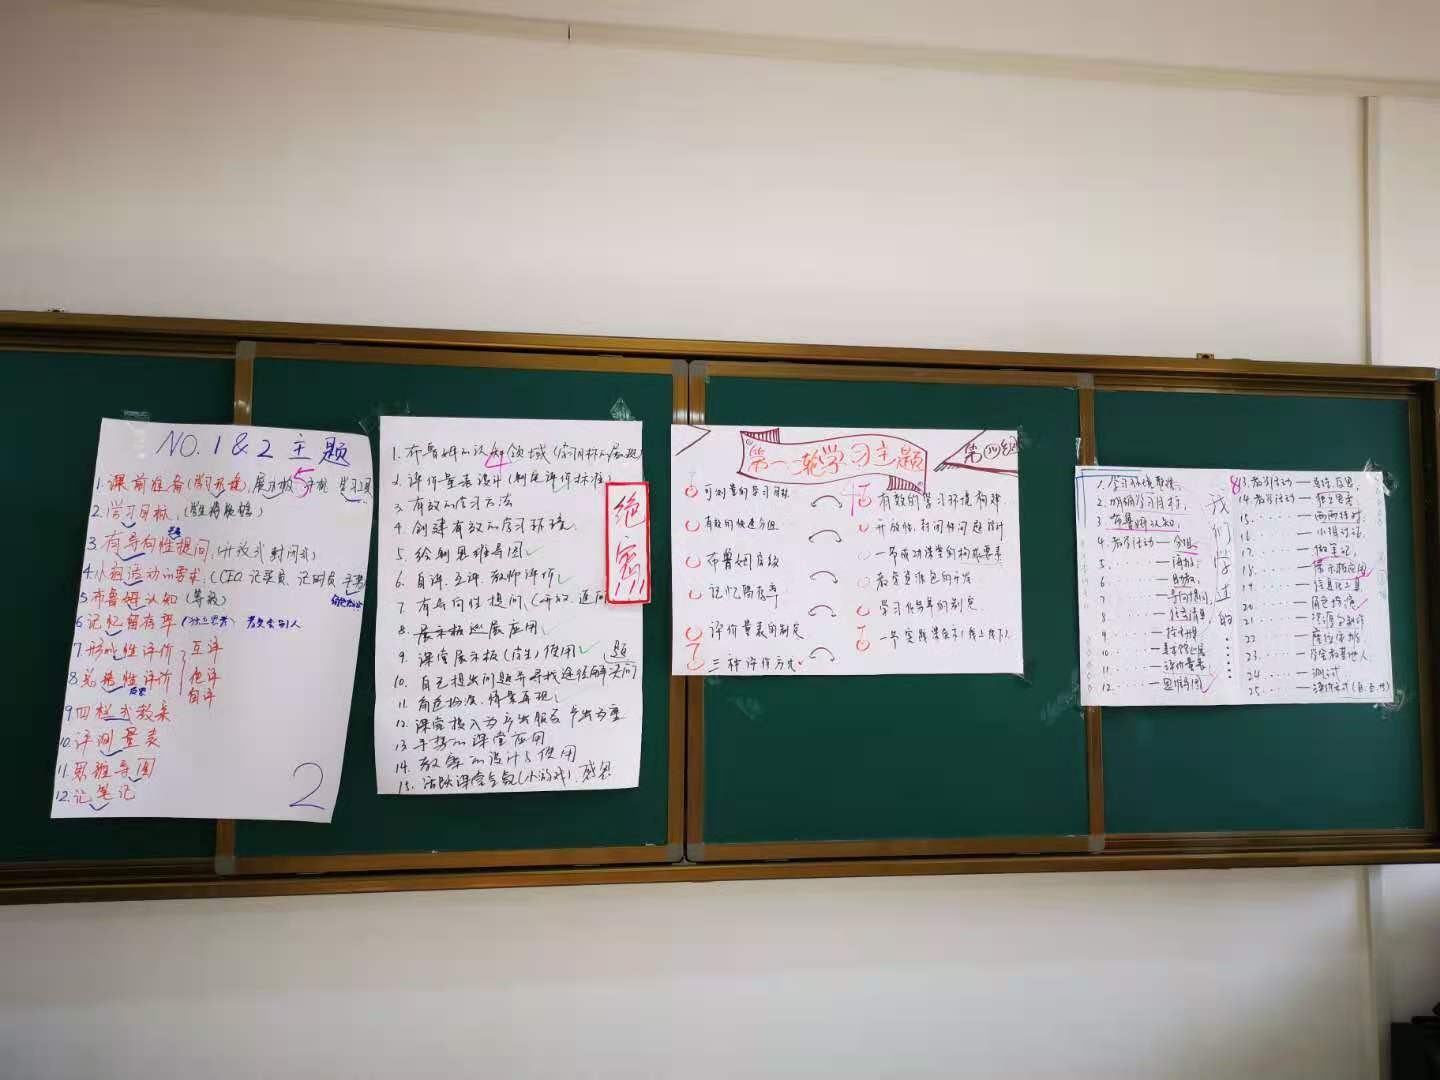 NO. 1 & 2 主题
1. 课前准备(学习环境,展示板,手机 学习工具
2. 学习目标,
3. 有导向性提问,(开放式 封闭式)
4. 小组活动的要求,(CEO 记录员 记时员
5. 布鲁姆认知(等级)
6. 记忆留存率(独立思考) 教会别人
7. 形成性评价 互评
8. 总结性评价 他评
自评
9. 四栏式教案
10. 评测量表
11. 思维导图
12. 记笔记
2
5
1. 布鲁姆的认知领域(
2. 评价量表设计(制定评价标准)
3. 有效的学习方法
4. 创建有效的学习环境
5. 绘制思维导图
6. 自评、互评、教师评价
7. 有导向性提问,(开放、
8. 展示板巡展应用
9. 课堂展示板(学生)使用
10. 自己提出问题并寻找途径解决问题
11. 角色扮演、情景再现
12. 课堂投入为产出服务
13. 手势的课堂应用
14. 教案的设计与使用
15. 活跃课堂气氛(小游戏)
4
绝密!!!
第一轮学习主题
第四组
可测量的学习目标
有效的快速分组
布鲁姆层级
记忆留存率
评价量表的制定
三种评价方式
有效的学习环境构建
开放性、封闭性问题设计
一节成功课堂的构成要素
教室资源包的开发
学习任务单的制定
我们学过的
1. 学习环境布接
2. 明确学习目标,
3. 布鲁姆认知,
4. 教学活动——分组,
5. ······——海报,
6. ······
7. ······——导向提问,
8. ······——任务清单,
9. ······
10. ······
11. ······——评价量表
12. ······——思维导图
8
13. 教学活动——总结、反思
14. 教学活动——独立思考,
15. ······——两两结对,
16. ······——小组讨论,
17. ······——做笔记,
18. ······——展示板应用
19. ······——信息化工具
20. ······——角色扮演
21. ······
22. ······
23. ······——学会教其他人
24. ······——测试
25. ······——评价方式(自、互、